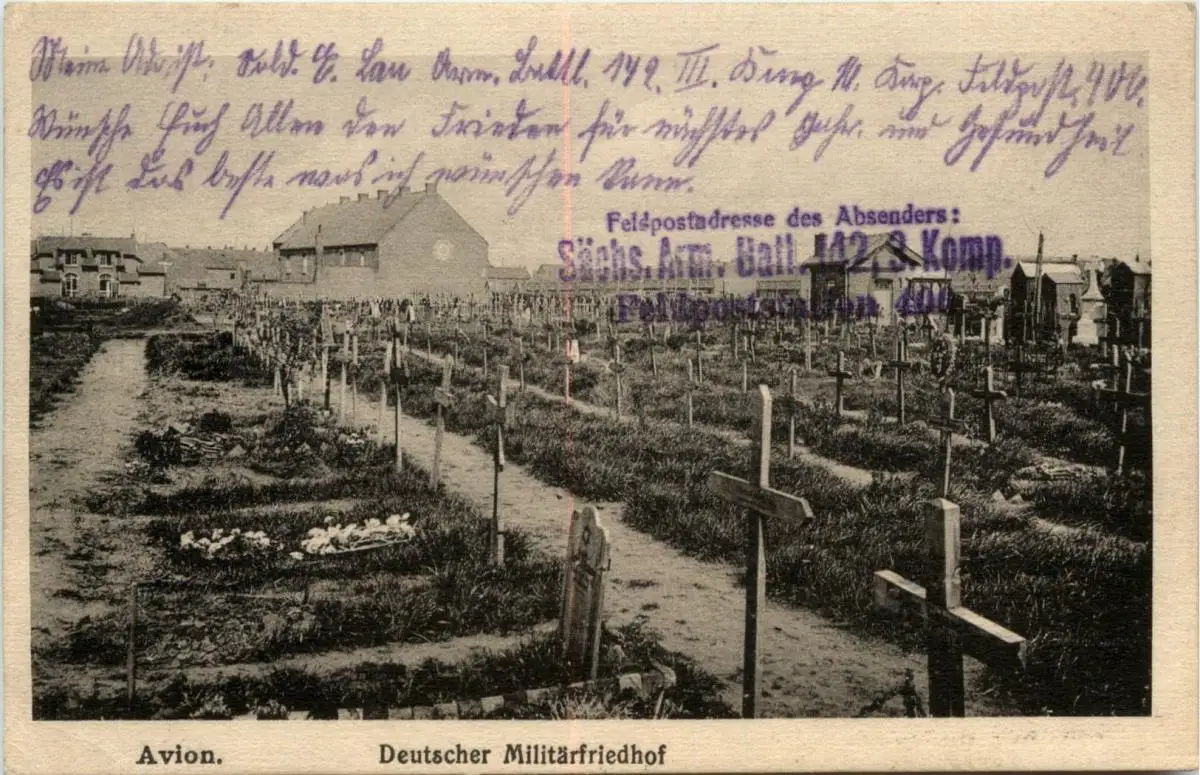 Meine Adr. ist: Sold. E. Lau Arm. Batll. 142. III. Komp. Feldpost. 406.
Wünsche Euch Allen den Frieden für nächstes Jahr. und Gesundheit
Es ist das beste was ich wünschen kann.
Feldpostadresse des Absenders:
Sächs. Arm. Batl. 142, 3. Komp.
Feldpoststation 406
Avion. Deutscher Militärfriedhof